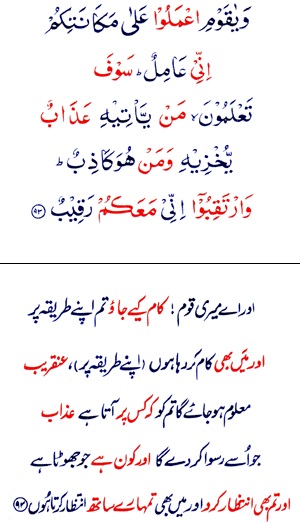 وَيٰقَوْمِ اعْمَلُوْا عَلٰى مَكَانَتِكُمْ
اِنِّىْ عَامِلٌ ؕ سَوْفَ
تَعْلَمُوْنَ ۙ مَنْ يَّاْتِيْهِ عَذَابٌ
يُّخْزِيْهِ وَمَنْ هُوَ كَاذِبٌ ؕ
وَارْتَقِبُوْۤا اِنِّىْ مَعَكُمْ رَقِيْبٌ ﴿۹۳﴾
اور اے میری قوم ! کام کیے جاؤ تم اپنے طریقہ پر
اور میں بھی کام کر رہا ہوں (اپنے طریقہ پر)، عنقریب
معلوم ہو جائے گا تم کو کہ کس پر آتا ہے عذاب
جو اُسے رسوا کر دے گا اور کون ہے جو جھوٹا ہے
اور تم بھی انتظار کرو اور میں بھی تمہارے ساتھ انتظار کرتا ہُوں ﴿۹۳﴾